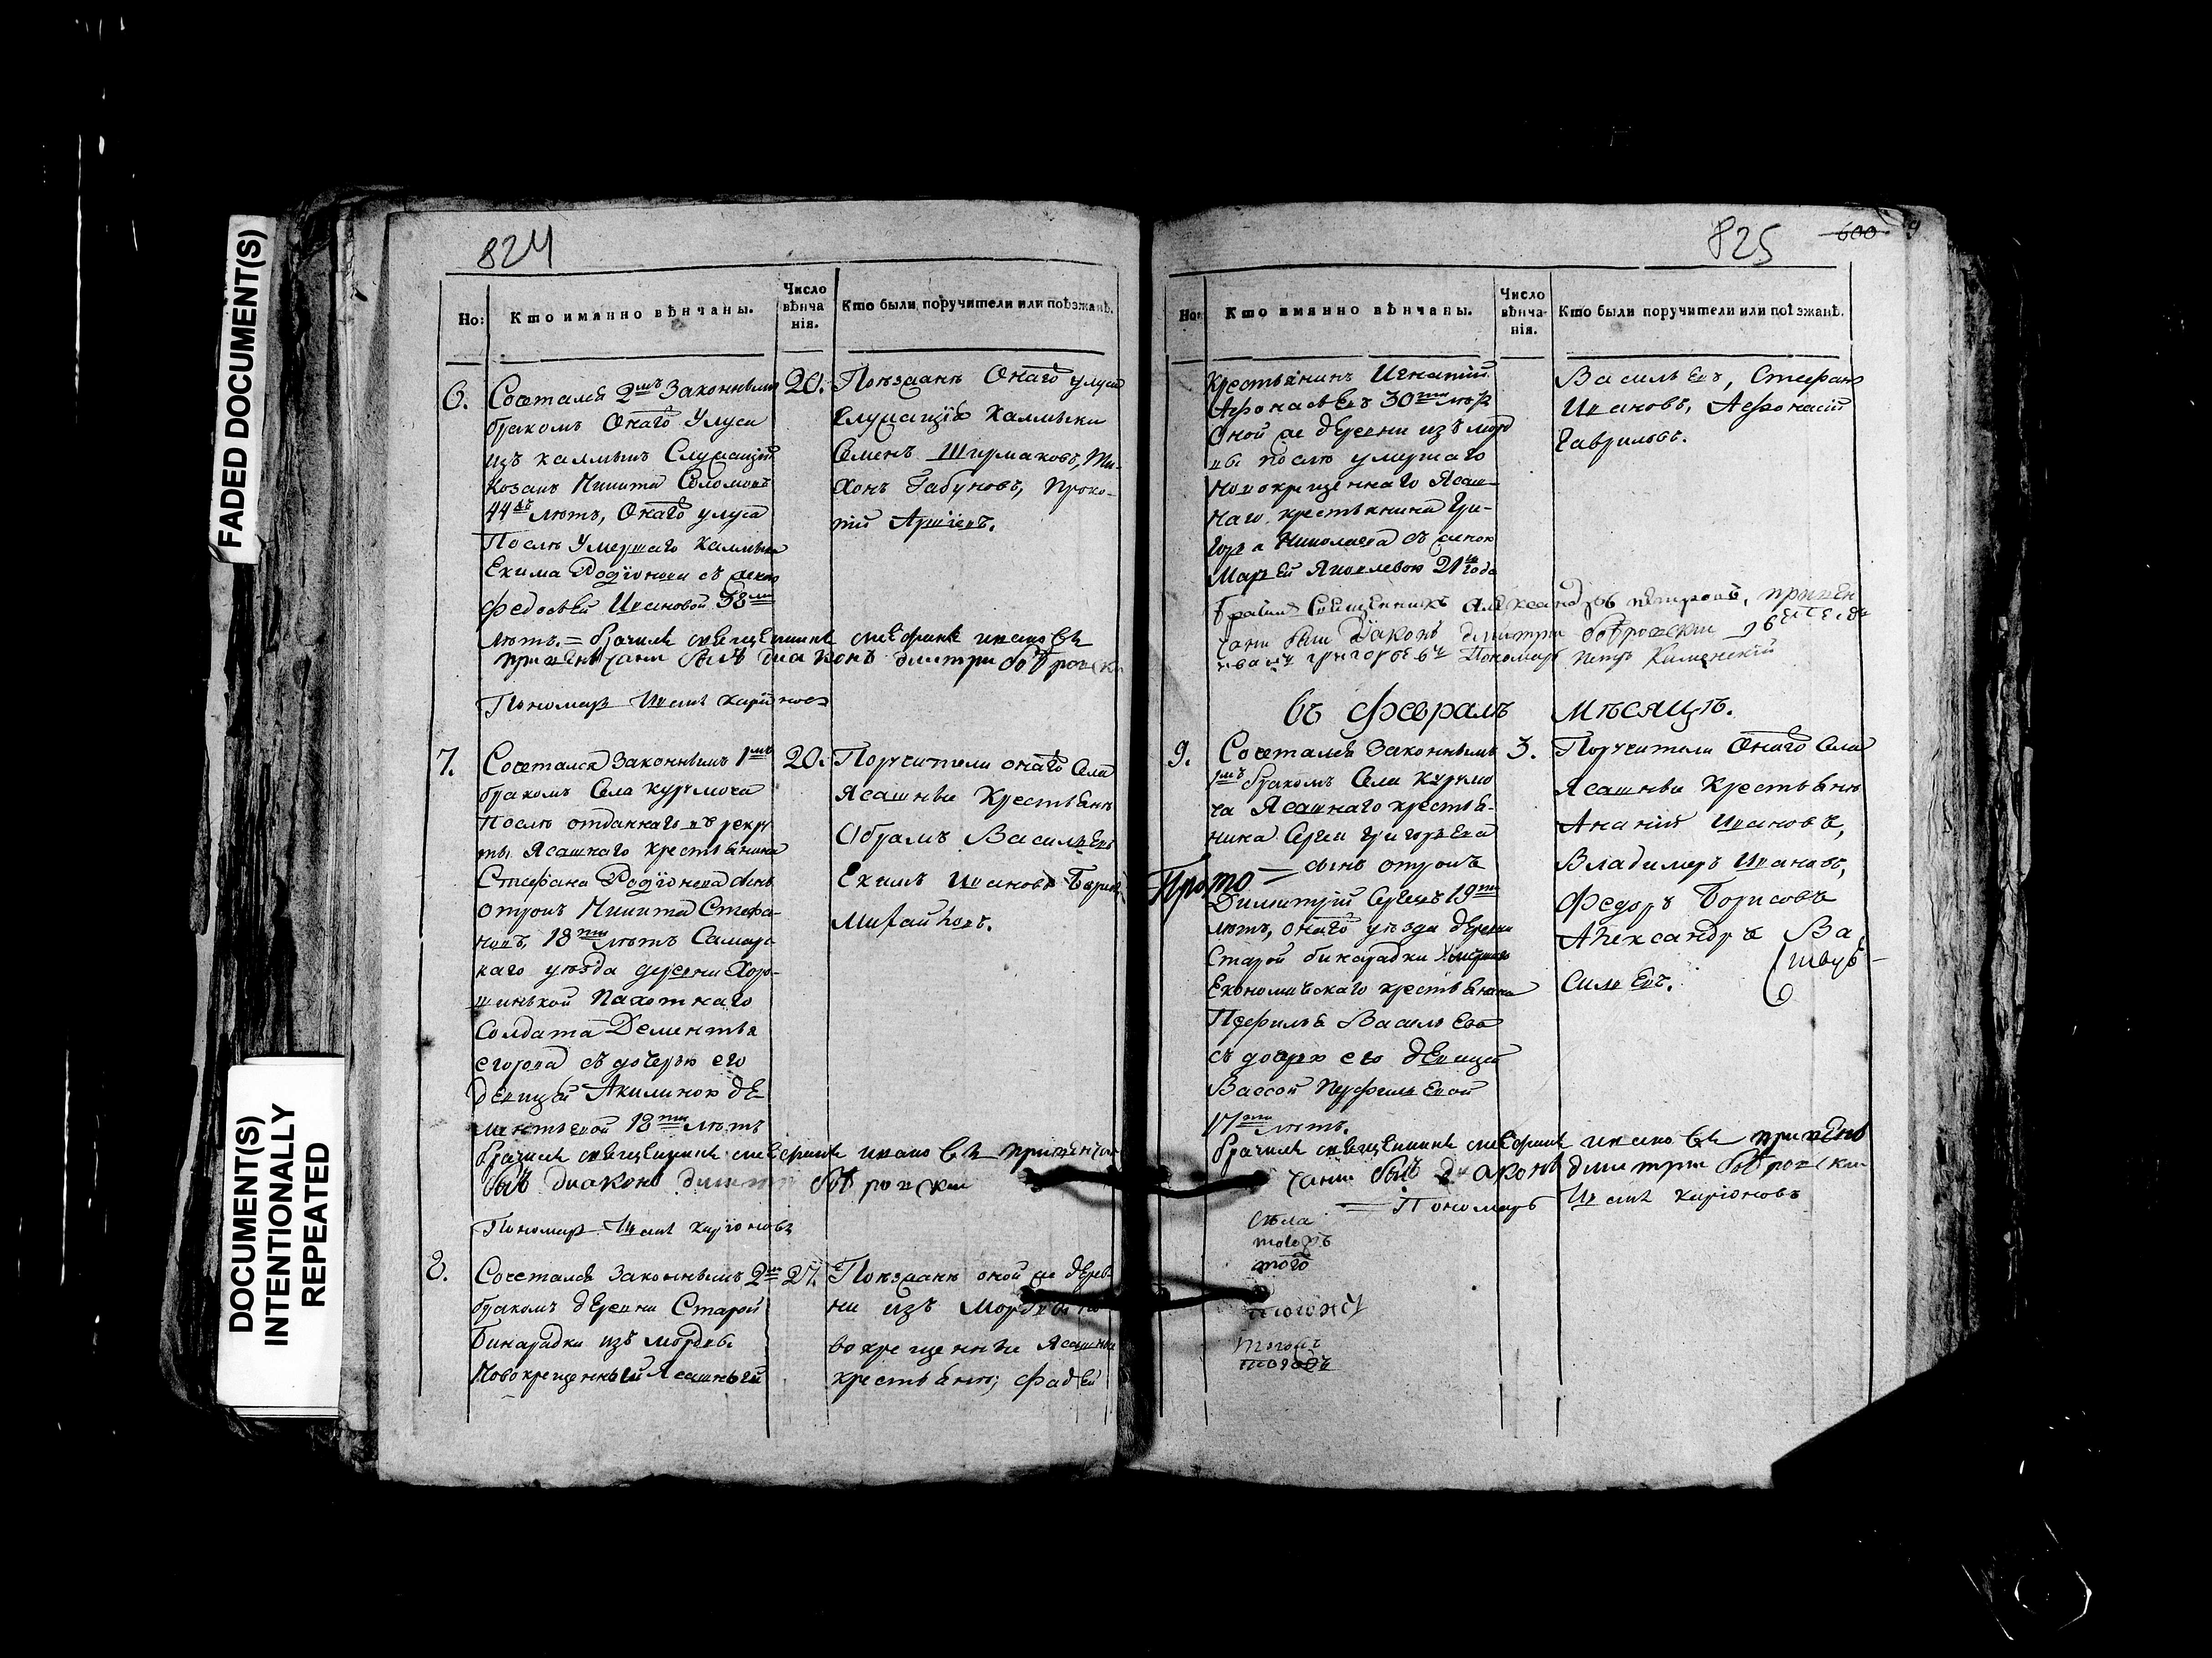 FADED DOCUMENT(S)
DOCUMENT(S)
INTENTIONALLY
REPEATED
824
Но:
Кто имянно вѣнчаны.
Число
вѣнча
нія.
Кто были поручители или поѣзжанѣ.
6.
Сочетался 2мъ Законнымъ
бракомъ Онаго Улуса
изъ калмыкъ Служащій
Козакъ Никита Соломовъ
44хъ лѣтъ, Онаго улуса
Послѣ Умершаго Калмыка
Екима Родіонова съ женою
Федосьей Ивановой 38ми
лѣтъ. = брачилъ священникъ стефанъ иванов
при вѣнчани былъ диаконъ димитри бобровски
Пономарь Иван Карионовъ
20.
Поѣзжанѣ Онаго улуса
Служащія Калмыки
Семенъ Ширмаковъ, Ти-
хонъ Габуновъ, Проко-
пій
7.
Сочетался Законнымъ 1мъ
бракомъ Села Курумоча
Послѣ отданнаго въ рекру
ты Ясашнаго крестьянина
Стефана Родіонова сынъ
отрокъ Никита Стефа-
новъ 18ти лѣтъ Самарс
каго уѣзда деревни Хор-
шинькой Пахотнаго
Солдата Дементья
егорова съ дочерью его
Девицей Акилиною де
ментьевой 18ти лѣтъ
брачилъ священникъ стефанъ иванов при
былъ диаконъ димитри бобровски
Пономарь Иван Карионовъ
20.
Поручители онаго Села
Ясашныи Крестьянѣ
Обрамъ Васильевъ
Екимъ Ивановъ
Михайловъ.
8.
Сочетался Законнымъ 2мъ
бракомъ деревни Старой
Бинарадки изъ мордвы
Новокрещенный Ясашный
27.
Поѣзжанѣ оной же дерев-
ни изъ Мордвы но
вокрещенныи Ясашныи
крестьянѣ; Фадей
825
600
Но:
Кто имянно вѣнчаны.
Число
вѣнча-
нія.
Кто были поручители или поѣзжанѣ.
Крестьянинъ Игнатій
Афонасьевъ 30ти лѣтъ
Оной же деревни изъ морд
вы послѣ умершаго
Новокрещеннаго Ясаш-
наго крестьянина Гри-
горья Николаева съ женою
Марьей Яковлевою 21го года
брачилъ Священникъ Александръ петровъ, при вѣн
чани были Діаконъ димитри бобровски
иванъ григорьевъ Пономарь Петръ Каменскій
Васильевъ, Стефанъ
Ивановъ, Афонасій
Гавриловъ.
Въ Февралѣ Мѣсяцѣ.
9.
Сочетался Законнымъ
1мъ бракомъ Села Курумо
ча Ясашнаго крестья-
нина Сергѣя Григорьева
сынъ отрокъ
Прото
Димитрій Сергѣевъ 19ти
лѣтъ, онаго уѣзда деревни
Старой бинарадки Умершаго
Економическаго крестьянина
Перфилья Васильева
съ дочерью его девицей
Вассой Перфильевой
17ти лѣтъ.
брачилъ священникъ стефанъ иванов при вѣнь
чани былъ диаконъ димитри бобровски
Пономарь Иван Карионовъ
3.
Поручители Онаго Села
Ясашныи Крестьянѣ
Ананій Ивановъ,
Владимеръ Ивановъ,
Федоръ Борисовъ
Александръ Ва
сильевъ.
Села
того